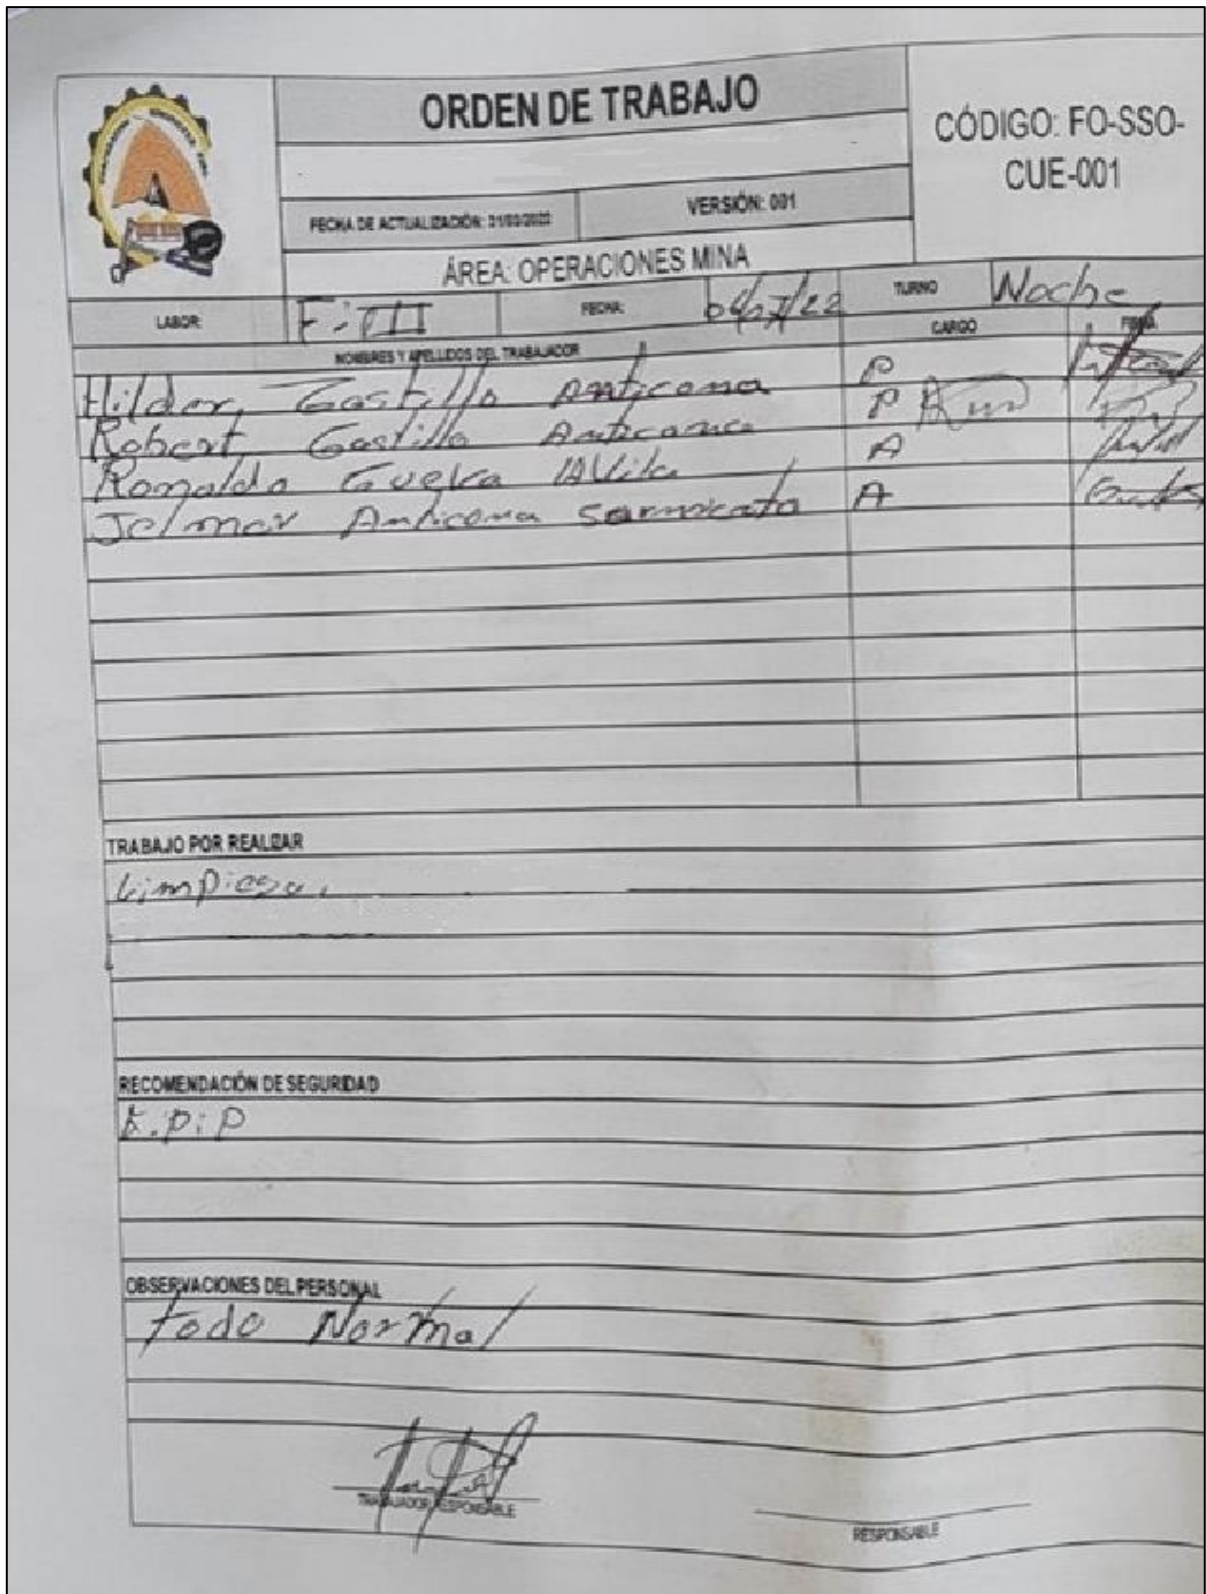 ORDEN DE TRABAJO
CÓDIGO: FO-SSO-
CUE-001
FECHA DE ACTUALIZACIÓN: 31/03/2022
VERSIÓN: 001
ÁREA: OPERACIONES MINA
LABOR: FECHA: TURNO Noche
NOMBRES Y APELLIDOS DEL TRABAJADOR CARGO FIRMA
Hilder, Castillo Anticona P
Robert, Castillo Anticona P
Ronaldo A
Jelmer Anticona A
TRABAJO POR REALIZAR
Limpiesa.
RECOMENDACIÓN DE SEGURIDAD
E.P.P
OBSERVACIONES DEL PERSONAL
todo Normal
TRABAJADOR RESPONSABLE
RESPONSABLE